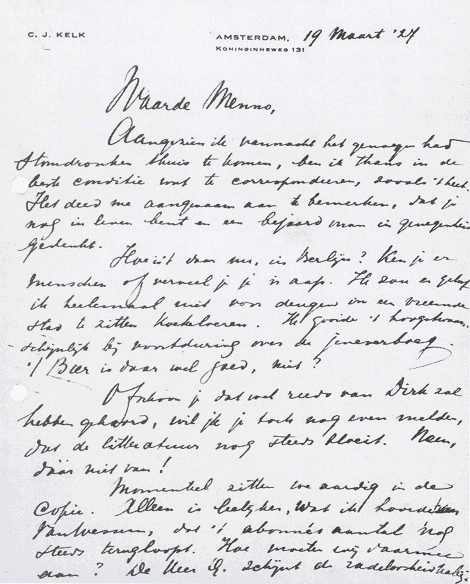 C. J. KELK
AMSTERDAM, 19 Maart '27
KONINGINNEWEG 131
Waarde Menno,
Aangezien ik vannacht het genoegen had
stomdronken thuis te komen, ben ik thans in de
beste conditie om te correspondeeren, zooals 't heet.
Het deed me aangenaam aan te bemerken, dat je
nog in leven bent en een bejaard man in genegenheid
gedenkt.
Hoe is 't daar nu, in Berlijn? Ken je er
menschen of verveel je je 'n aap. Ik zou er geloof
ik heelemaal niet voor deugen om in een vreemde
stad te zitten koekeloeren. Ik gooide 't hoogstwaar-
schijnlijk bij voortduring over de jeneverboeg.
't Bier is daar wel goed, niet?
Ofschoon je dat wel reeds van Dirk zal
hebben gehoord, wil ik je toch nog even melden,
dat de litteratuur nog steeds bloeit. Neen,
dáár niet van!
Momenteel zitten we aardig in de
copie. Alleen is leelijk, wat ik hoorde van
Van Wessem, dat 't abonnés aantal nog
steeds terugloopt. Hoe moeten wij daarmee
aan? De Heer Q. schijnt de radeloosheid